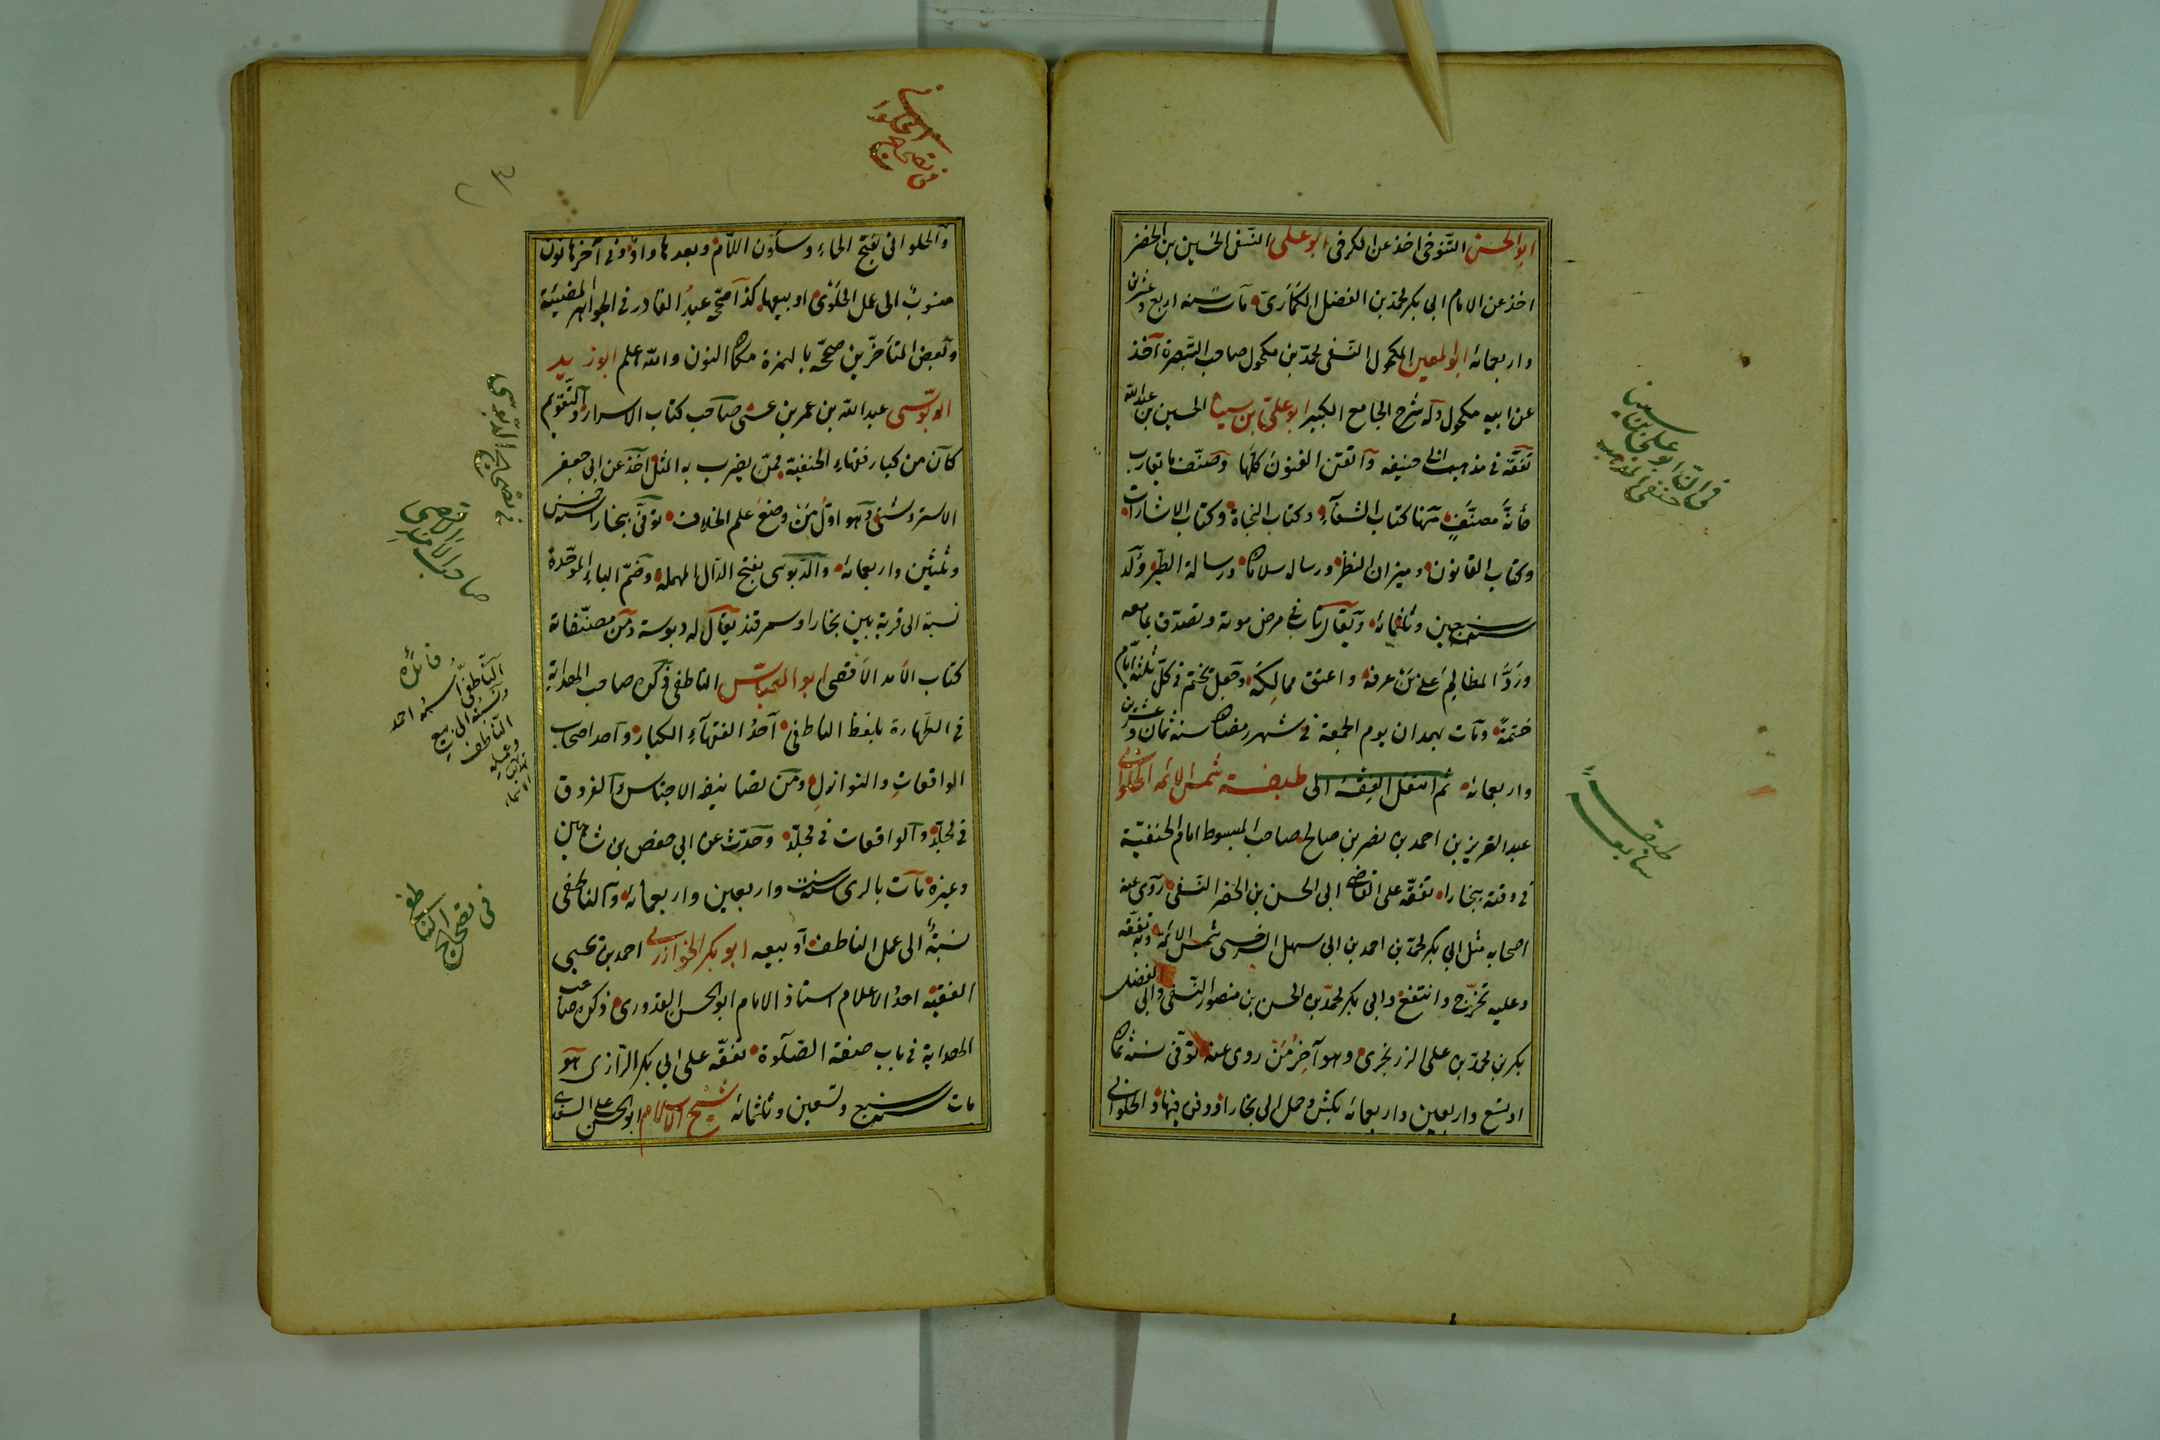 ابو الحسن التنوخى اخذ عن الكرخى ابو على النسفى الحسين بن الخضر
اخذ عن الامام ابى بكر محمد بن الفضل الكمارى مات سنه اربع وعشرين
واربعمائه ابو المعين المكحول النسفى محمد بن مكحول صاحب التبصرة آخذ
عن ابيه مكحول وله شرح الجامع الكبير ابو على بن سينا الحسين بن عبد الله
تفقه فى مذهب ابى حنيفه وآتقن الفنون كلها وصنف ما يقارب
مأئة مصنف منها كتاب الشفآء وكتاب النجاة وكتاب الاشارات
وكتاب القانون وميزان النظر ورساله سلامان ورسالة الطير ولد
سنه سبعين وثلثمائه ويقال تاب فى مرض موته وتصدق بما معه
ورد المظالم على من عرفه واعتق مماليكه وجعل يختم فى كل ثلثة ايام
ختمة ومات بهمدان يوم الجمعة فى شهر رمضان سنه ثمان وعشرين
واربعمائه ثم انتقل الفقه الى طبقة شمس الائمه الحلوانى
عبد العزيز بن احمد بن نصر بن صالح صاحب المبسوط امام الحنفية
فى وقته ببخارا تفقه على القاضى ابى الحسن بن الخضر النسفى روى عنه
اصحابه مثل ابى بكر محمد بن احمد بن ابى سهل السرخسى شمس الائمة وبه تفقه
وعليه تخرج وانتفع وابى بكر محمد بن الحسن بن منصور النسفى وابى الفضل
بكر بن محمد بن على الزرنجرى وهو آخر من روى عنه توفى سنة ثمان
او تسع واربعين واربعمائه بكش وحمل الى بخارا ودفن فيها والحلوانى
فى ان ابو على بن سينا
حنفى المذهب
طبقة
سابعة
والحلوانى بفتح الحاء وسكون اللام وبعدها واو وفى آخرها نون
منسوب الى عمل الحلوى او بيعها كذا صحه عبد القادر فى الجواهر المضيئة
وبعض المتأخرين صحه بالهمزة مكان النون والله اعلم ابو زيد
الدبوسى عبد الله بن عمر بن عيسى صاحب كتاب الاسرار والتقويم
كان من كبار فقهاء الحنفية ممن يضرب به المثل آخذ عن ابى جعفر
الاستروشنى وهو اول من وضع علم الخلاف توفى ببخارا سنه خمس
وثلثين واربعمائه والدبوسى بفتح الدال المهمله وضم الباء الموحدة
نسبة الى قرية بين بخارا وسمرقند يقال له دبوسة ومن مصنفاته
كتاب الامد الاقصى ابو العباس الناطفى ذكره صاحب الهداية
فى الطهارة بلفظ الناطفى آحد الفقهآء الكبار وآحد اصحاب
الواقعات والنوازل ومن تصانيفه الاجناس والفروق
فى مجلد وآلواقعات فى مجلد وحدث عن ابى حفص بن شاهين
وغيره مآت بالرى سنه ست واربعين واربعمائه والناطفى
نسبة الى عمل الناطف او بيعه ابو بكر الخوارزمى احمد بن يحيى
الفقيه احد الاعلام استاذ الامام ابو الحسن القدورى ذكره صاحب
الهداية فى باب صفة الصلوة تفقه على ابى بكر الرازى هو
مات سنه سبع وتسعين وثلثمائه شيخ الاسلام ابو الحسن على السغدى
فى تصحيح الحلوانى
فى تصحيح الدبوسى
صاحب الامد الاقصى
فائدة
الناطفى اسمه احمد
ونسبته الى بيع
الناطف
فى تصحيح الناطفى